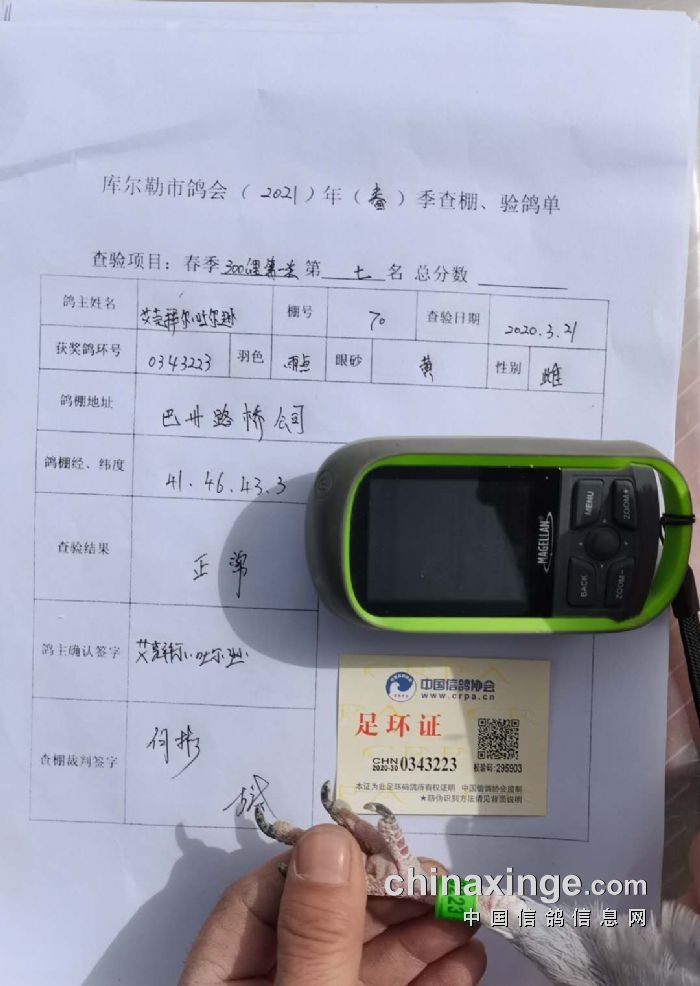 库尔勒市鸽会（2021）年（春）季查棚、验鸽单
查验项目：春季300公里第一关 第 七 名 总分数
鸽主姓名 艾克拜尔·吐尔逊 棚号 70 查验日期 2020.3.21
获奖鸽环号 0343223 羽色 雨点 眼砂 黄 性别 雌
鸽棚地址 巴州路桥公司
鸽棚经、纬度 41.46.43.3
查验结果 正常
鸽主确认签字
查棚裁判签字 何彬
MAGELLAN
MENU
ZOOM+
BACK
ZOOM-
中国信鸽协会
www.crpa.cn
足环证
CHN 2020-30 0343223 校验码:295903
本证为此足环信鸽所有权证明 中国信鸽协会监制
★防伪识别方法请见背面说明
223
chinaxinge.com
中国信鸽信息网